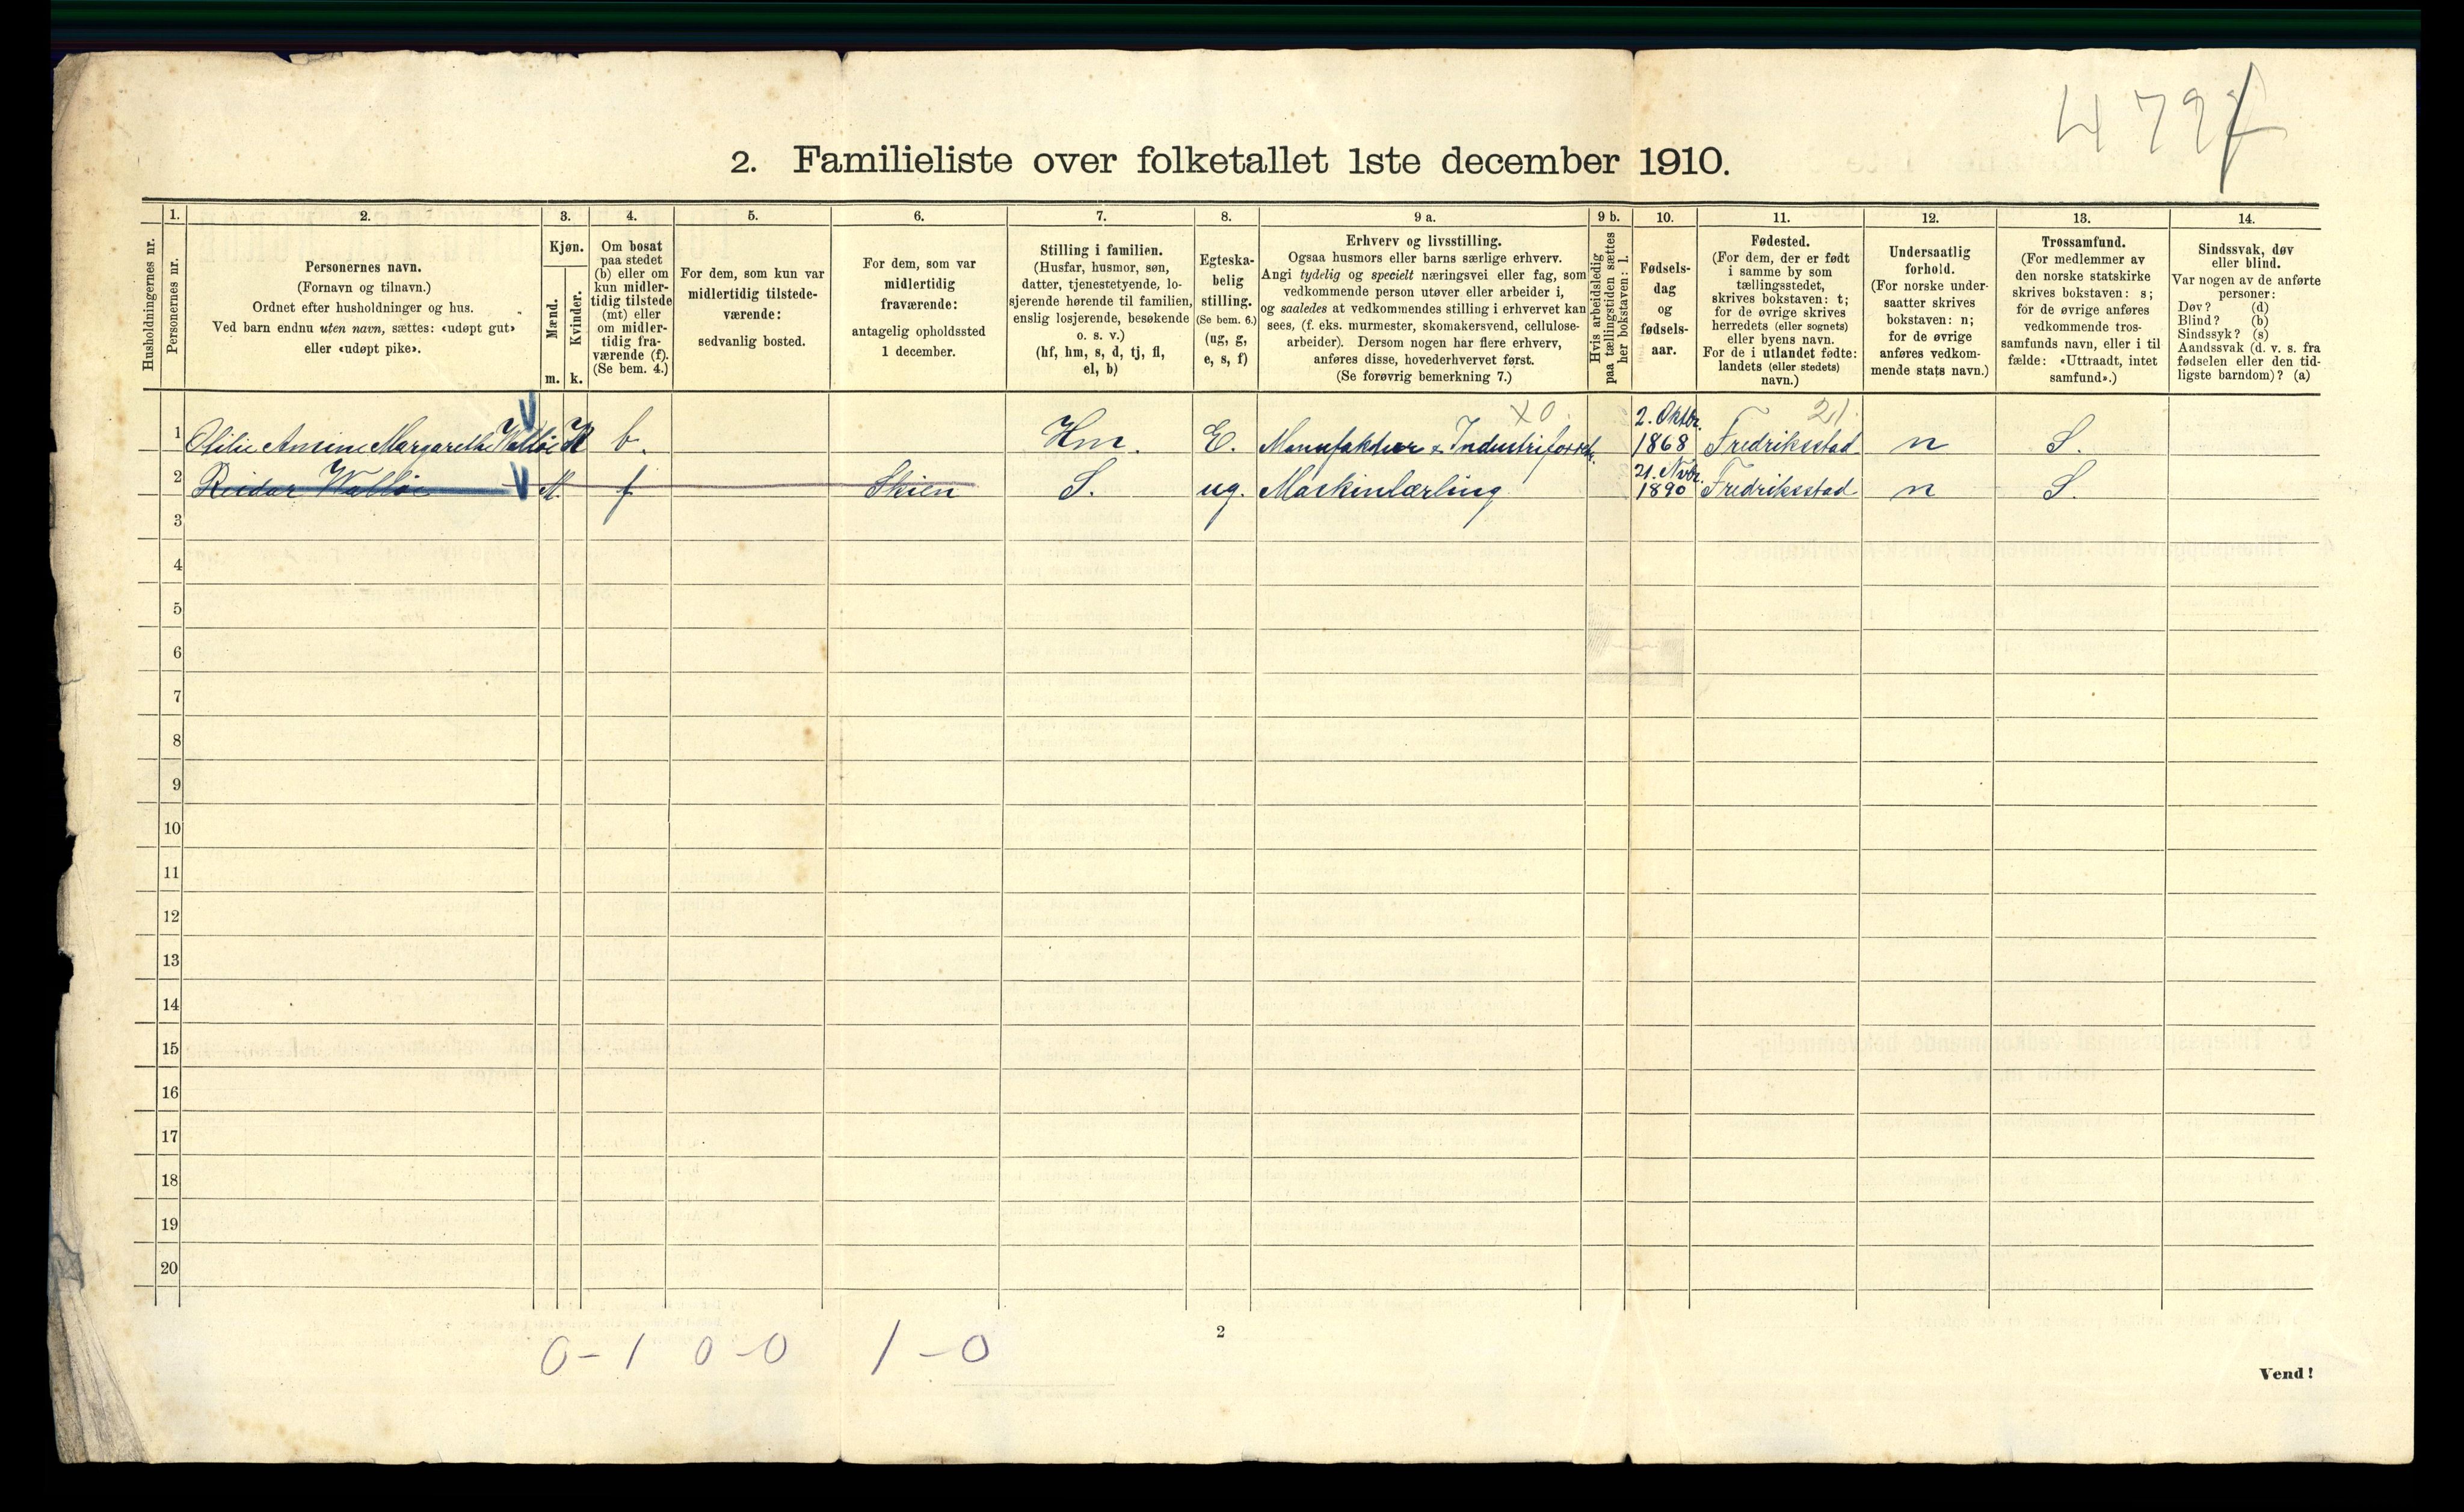 2. Familieliste over folketallet 1ste december 1910.
Husholdningernes nr.
1.
Personernes nr.
2.
Personernes navn.
(Fornavn og tilnavn.)
Ordnet efter husholdninger og hus.
Ved barn endnu uten navn, sættes: «udøpt gut»
eller «udøpt pike».
3.
Kjøn.
Mænd.
Kvinder.
m. k.
4.
Om bosat
paa stedet
(b) eller om
kun midler-
tidig tilstede
(mt) eller
om midler-
tidig fra-
værende (f).
(Se bem. 4.)
5.
For dem, som kun var
midlertidig tilstede-
værende:
sedvanlig bosted.
6.
For dem, som var
midlertidig
fraværende:
antagelig opholdssted
1 december.
7.
Stilling i familien.
(Husfar, husmor, søn,
datter, tjenestetyende, lo-
sjerende hørende til familien,
enslig losjerende, besøkende
o. s. v.)
(hf, hm, s, d, tj, fl,
el, b)
8.
Egteska-
belig
stilling.
(Se bem. 6.)
(ug, g,
e, s, f)
9 a.
Erhverv og livsstilling.
Ogsaa husmors eller barns særlige erhverv.
Angi tydelig og specielt næringsvei eller fag, som
vedkommende person utøver eller arbeider i,
og saaledes at vedkommendes stilling i erhvervet kan
sees, (f. eks. murmester, skomakersvend, cellulose-
arbeider). Dersom nogen har flere erhverv,
anføres disse, hovederhvervet først.
(Se forøvrig bemerkning 7.)
9 b.
Hvis arbeidsledig
paa tællingstiden sættes
her bokstaven: l.
10.
Fødsels-
dag
og
fødsels-
aar.
11.
Fødested.
(For dem, der er født
i samme by som
tællingsstedet,
skrives bokstaven: t;
for de øvrige skrives
herredets (eller sognets)
eller byens navn.
For de i utlandet fødte:
landets (eller stedets)
navn.)
12.
Undersaatlig
forhold.
(For norske under-
saatter skrives
bokstaven: n;
for de øvrige
anføres vedkom-
mende stats navn.)
13.
Trossamfund.
(For medlemmer av
den norske statskirke
skrives bokstaven: s;
for de øvrige anføres
vedkommende tros-
samfunds navn, eller i til
fælde: «Uttraadt, intet
samfund».)
14.
Sindssvak, døv
eller blind.
Var nogen av de anførte
personer:
Døv? (d)
Blind? (b)
Sindssyk? (s)
Aandssvak (d. v. s. fra
fødselen eller den tid-
ligste barndom)? (a)
X0. 21.
1 Otilie Ansine Margarethe Walløe K b. Hm. E. Manufaktur & Industriforretn. 2. Oktbr. 1868 Fredriksstad n S.
2 Reidar Walløe M. f Skien S. ug. Maskinlærling 21. Novbr. 1890 Fredriksstad n S.
3
4
5
6
7
8
9
10
11
12
13
14
15
16
17
18
19
20
0-1 0-0 1-0
2
Vend!